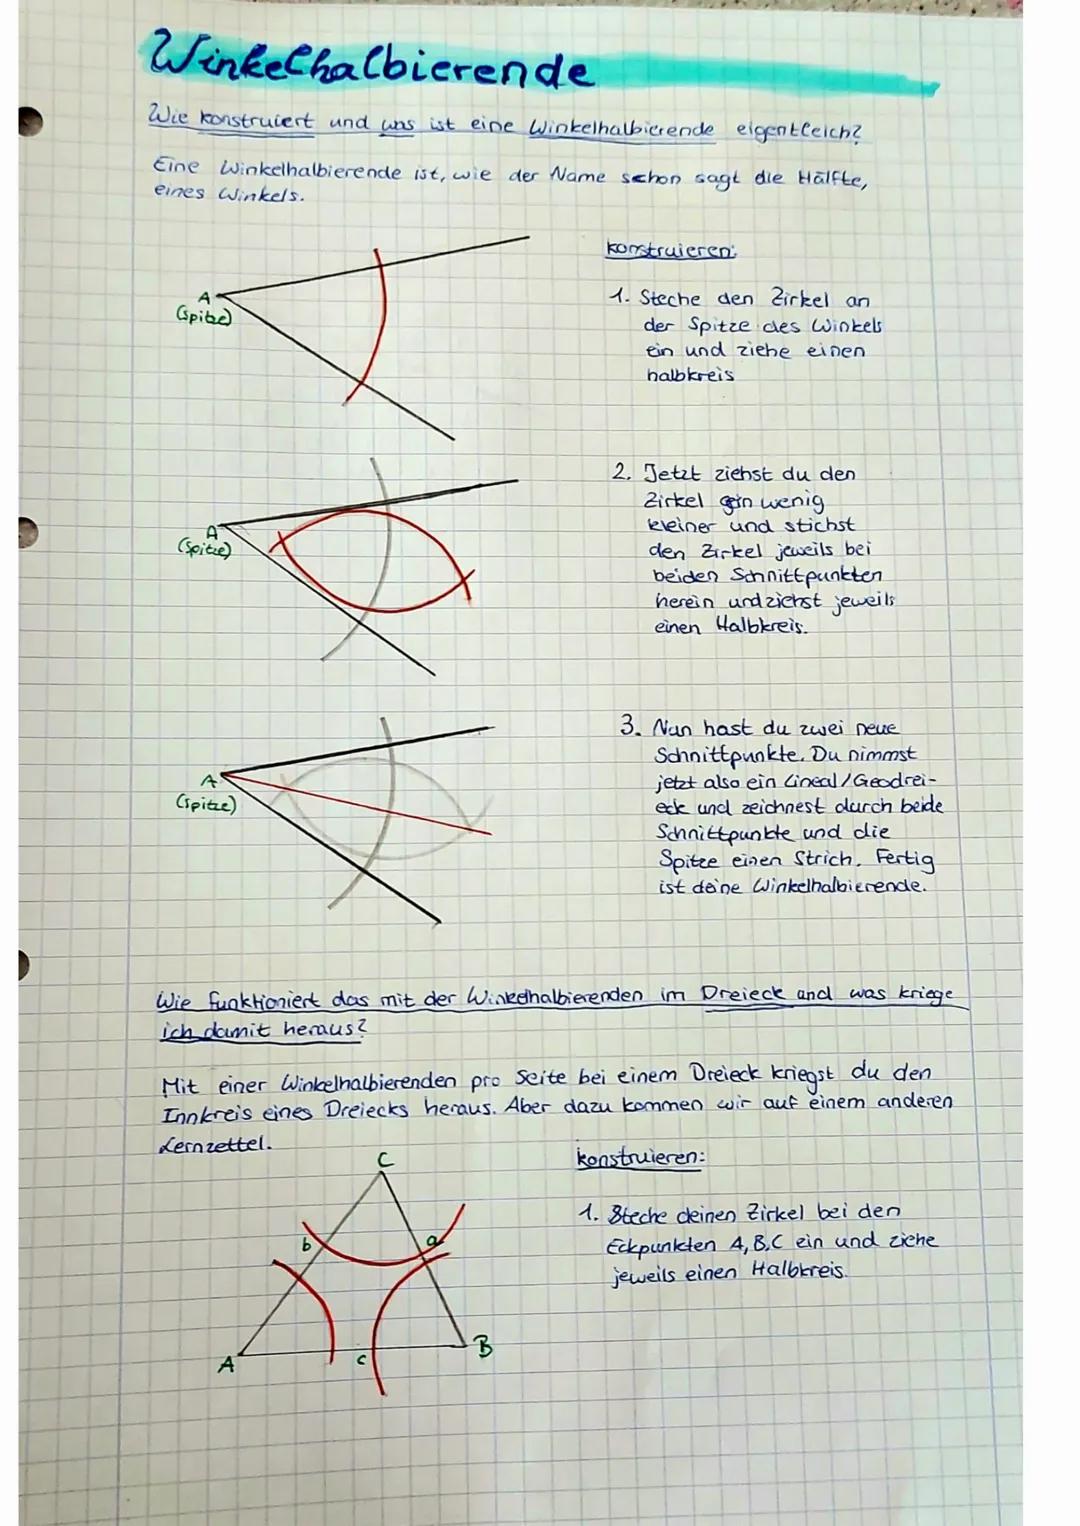 Winkelhalbierende
Wie konstruiert und was ist eine Winkelhalbierende eigentleich?
Eine Winkelhalbierende ist, wie der Name schon sagt die Hälfte,
eines Winkels.
A
(Spitze)
konstruieren:
1. Steche den Zirkel an
der Spitze des Winkels
ein und ziehe einen
halbkreis
A
(Spitze)
2. Jetzt ziehst du den
Zirkel ein wenig
kleiner und stichst
den Zirkel jeweils bei
beiden Schnittpunkten
herein und ziehst jeweils
einen Halbkreis.
A
(Spitze)
3. Nun hast du zwei neue
Schnittpunkte. Du nimmst
jetzt also ein Lineal/Geodrei-
eck und zeichnest durch beide
Schnittpunkte und die
Spitze einen Strich. Fertig
ist deine Winkelhalbierende.
Wie funktioniert das mit der Winkelhalbierenden im Dreieck und was kriege
ich damit heraus?
Mit einer Winkelhalbierenden pro Seite bei einem Dreieck kriegst du den
Innkreis eines Dreiecks heraus. Aber dazu kommen wir auf einem anderen
Lernzettel.
C
b
a
A
c
B
konstruieren:
1. Steche deinen Zirkel bei den
Eckpunkten A,B,C ein und ziehe
jeweils einen Halbkreis.